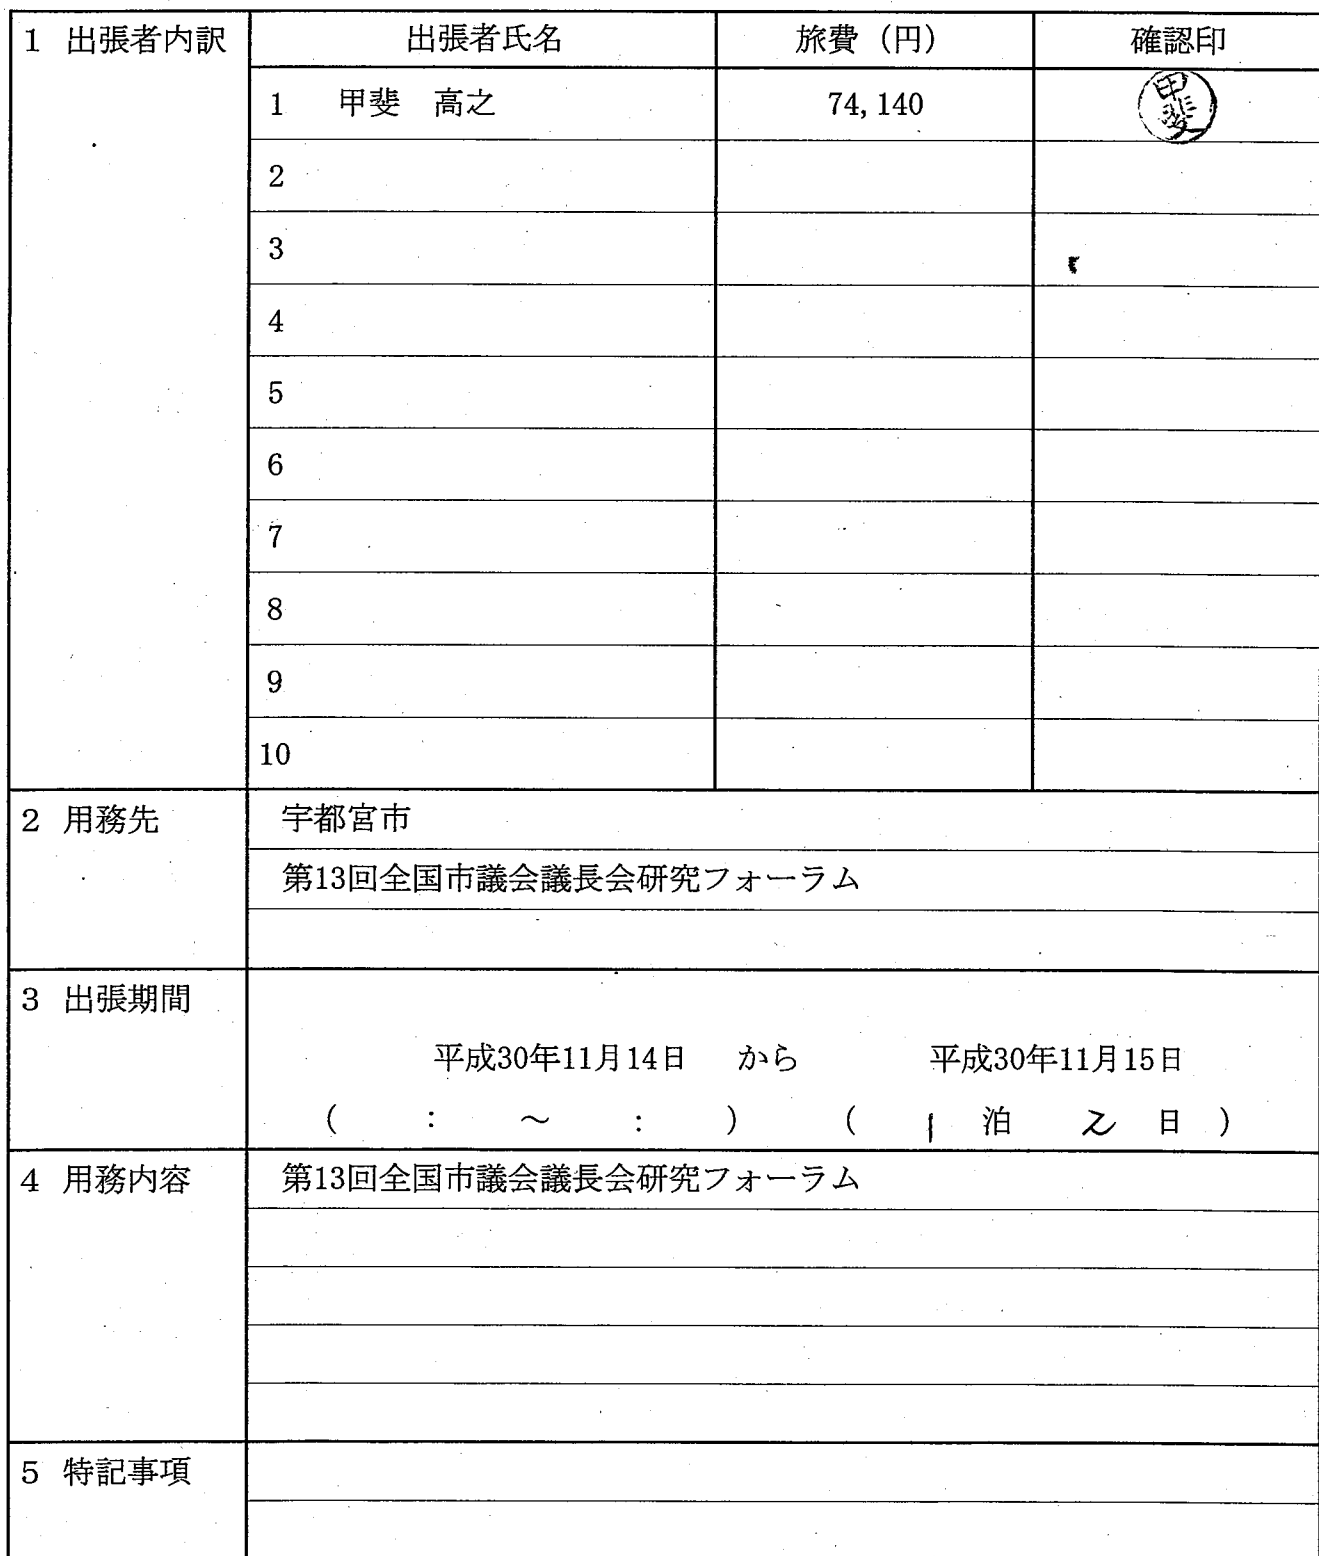 1 出張者内訳 出張者氏名 旅費 (円) 確認印
1 甲斐 高之 74,140 甲斐
2
3
4
5
6
7
8
9
10
2 用務先 宇都宮市
第13回全国市議会議長会研究フォーラム
3 出張期間
平成30年11月14日 から 平成30年11月15日
( : ～ : ) ( 1 泊 2 日 )
4 用務内容 第13回全国市議会議長会研究フォーラム
5 特記事項